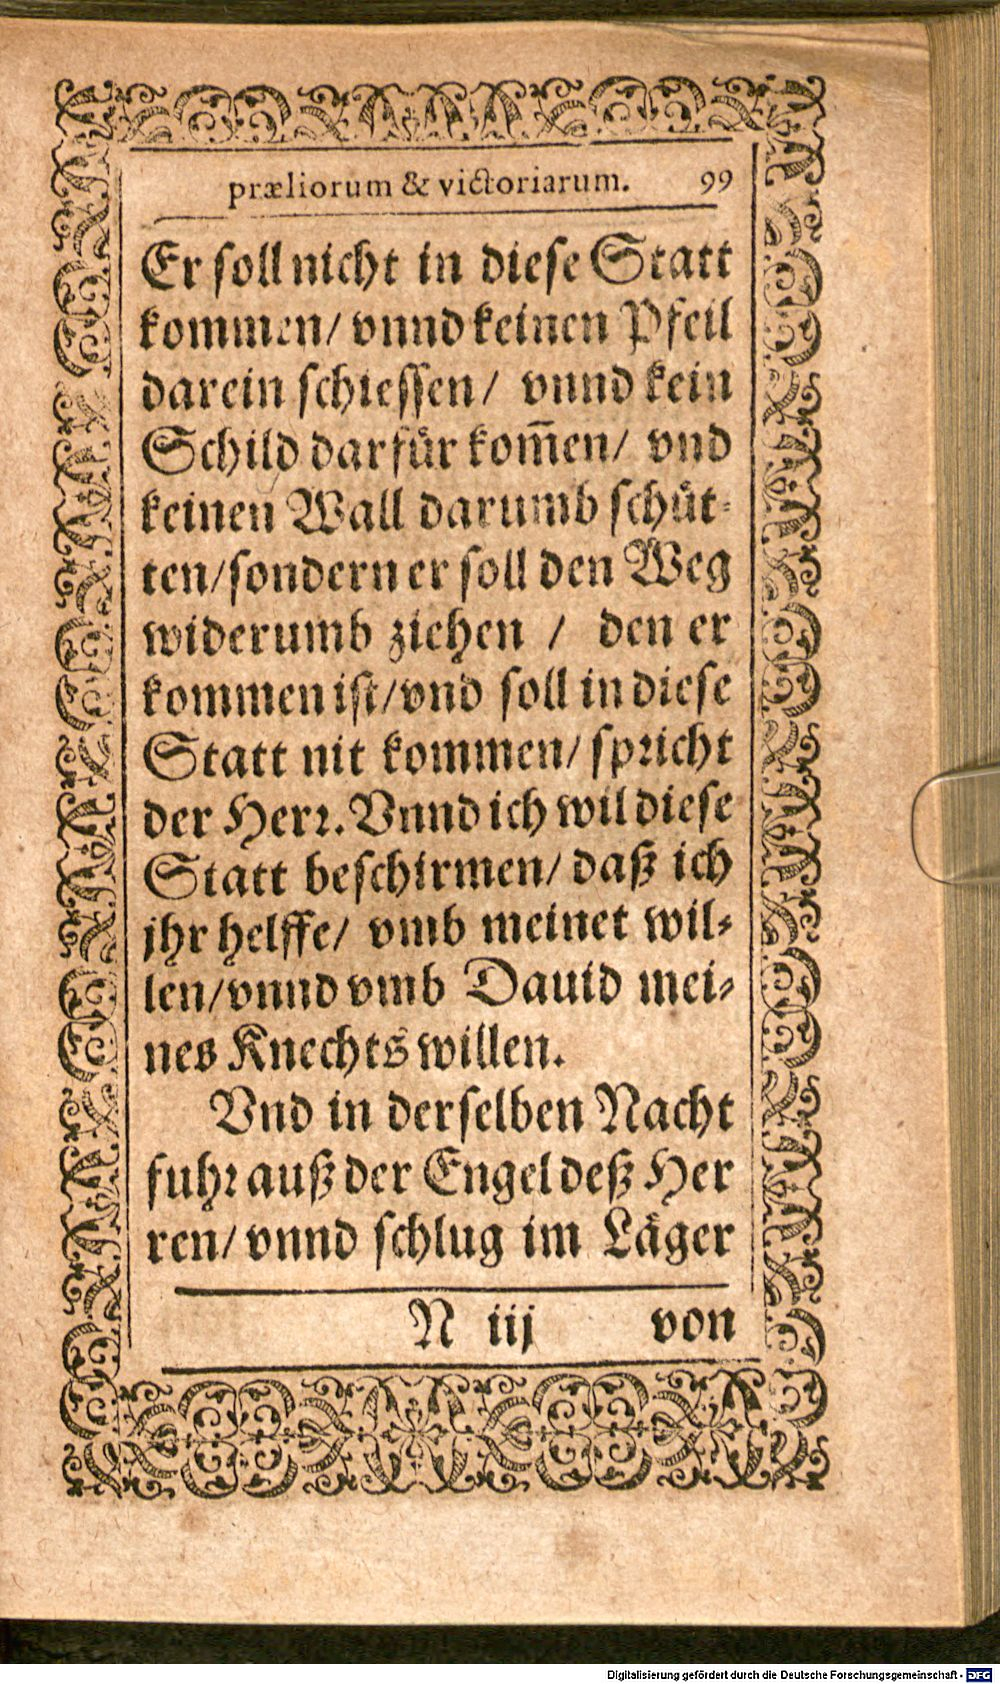 præliorum & victoriarum. 99
Er soll nicht in diese Statt
kommen/ vnnd keinen Pfeil
darein schiessen/ vnnd kein
Schild darfür kom̃en/ vnd
keinen Wall darumb schüt-
ten/sondern er soll den Weg
widerumb ziehen / den er
kommen ist/vnd soll in diese
Statt nit kommen/ spricht
der Herr. Vnnd ich wil diese
Statt beschirmen/ daß ich
jhr helffe/ vmb meinet wil-
len/vnnd vmb Dauid mei-
nes Knechts willen.
Vnd in derselben Nacht
fuhr auß der Engel deß Her
ren/ vnnd schlug im Läger
N iij von
Digitalisierung gefördert durch die Deutsche Forschungsgemeinschaft - DFG